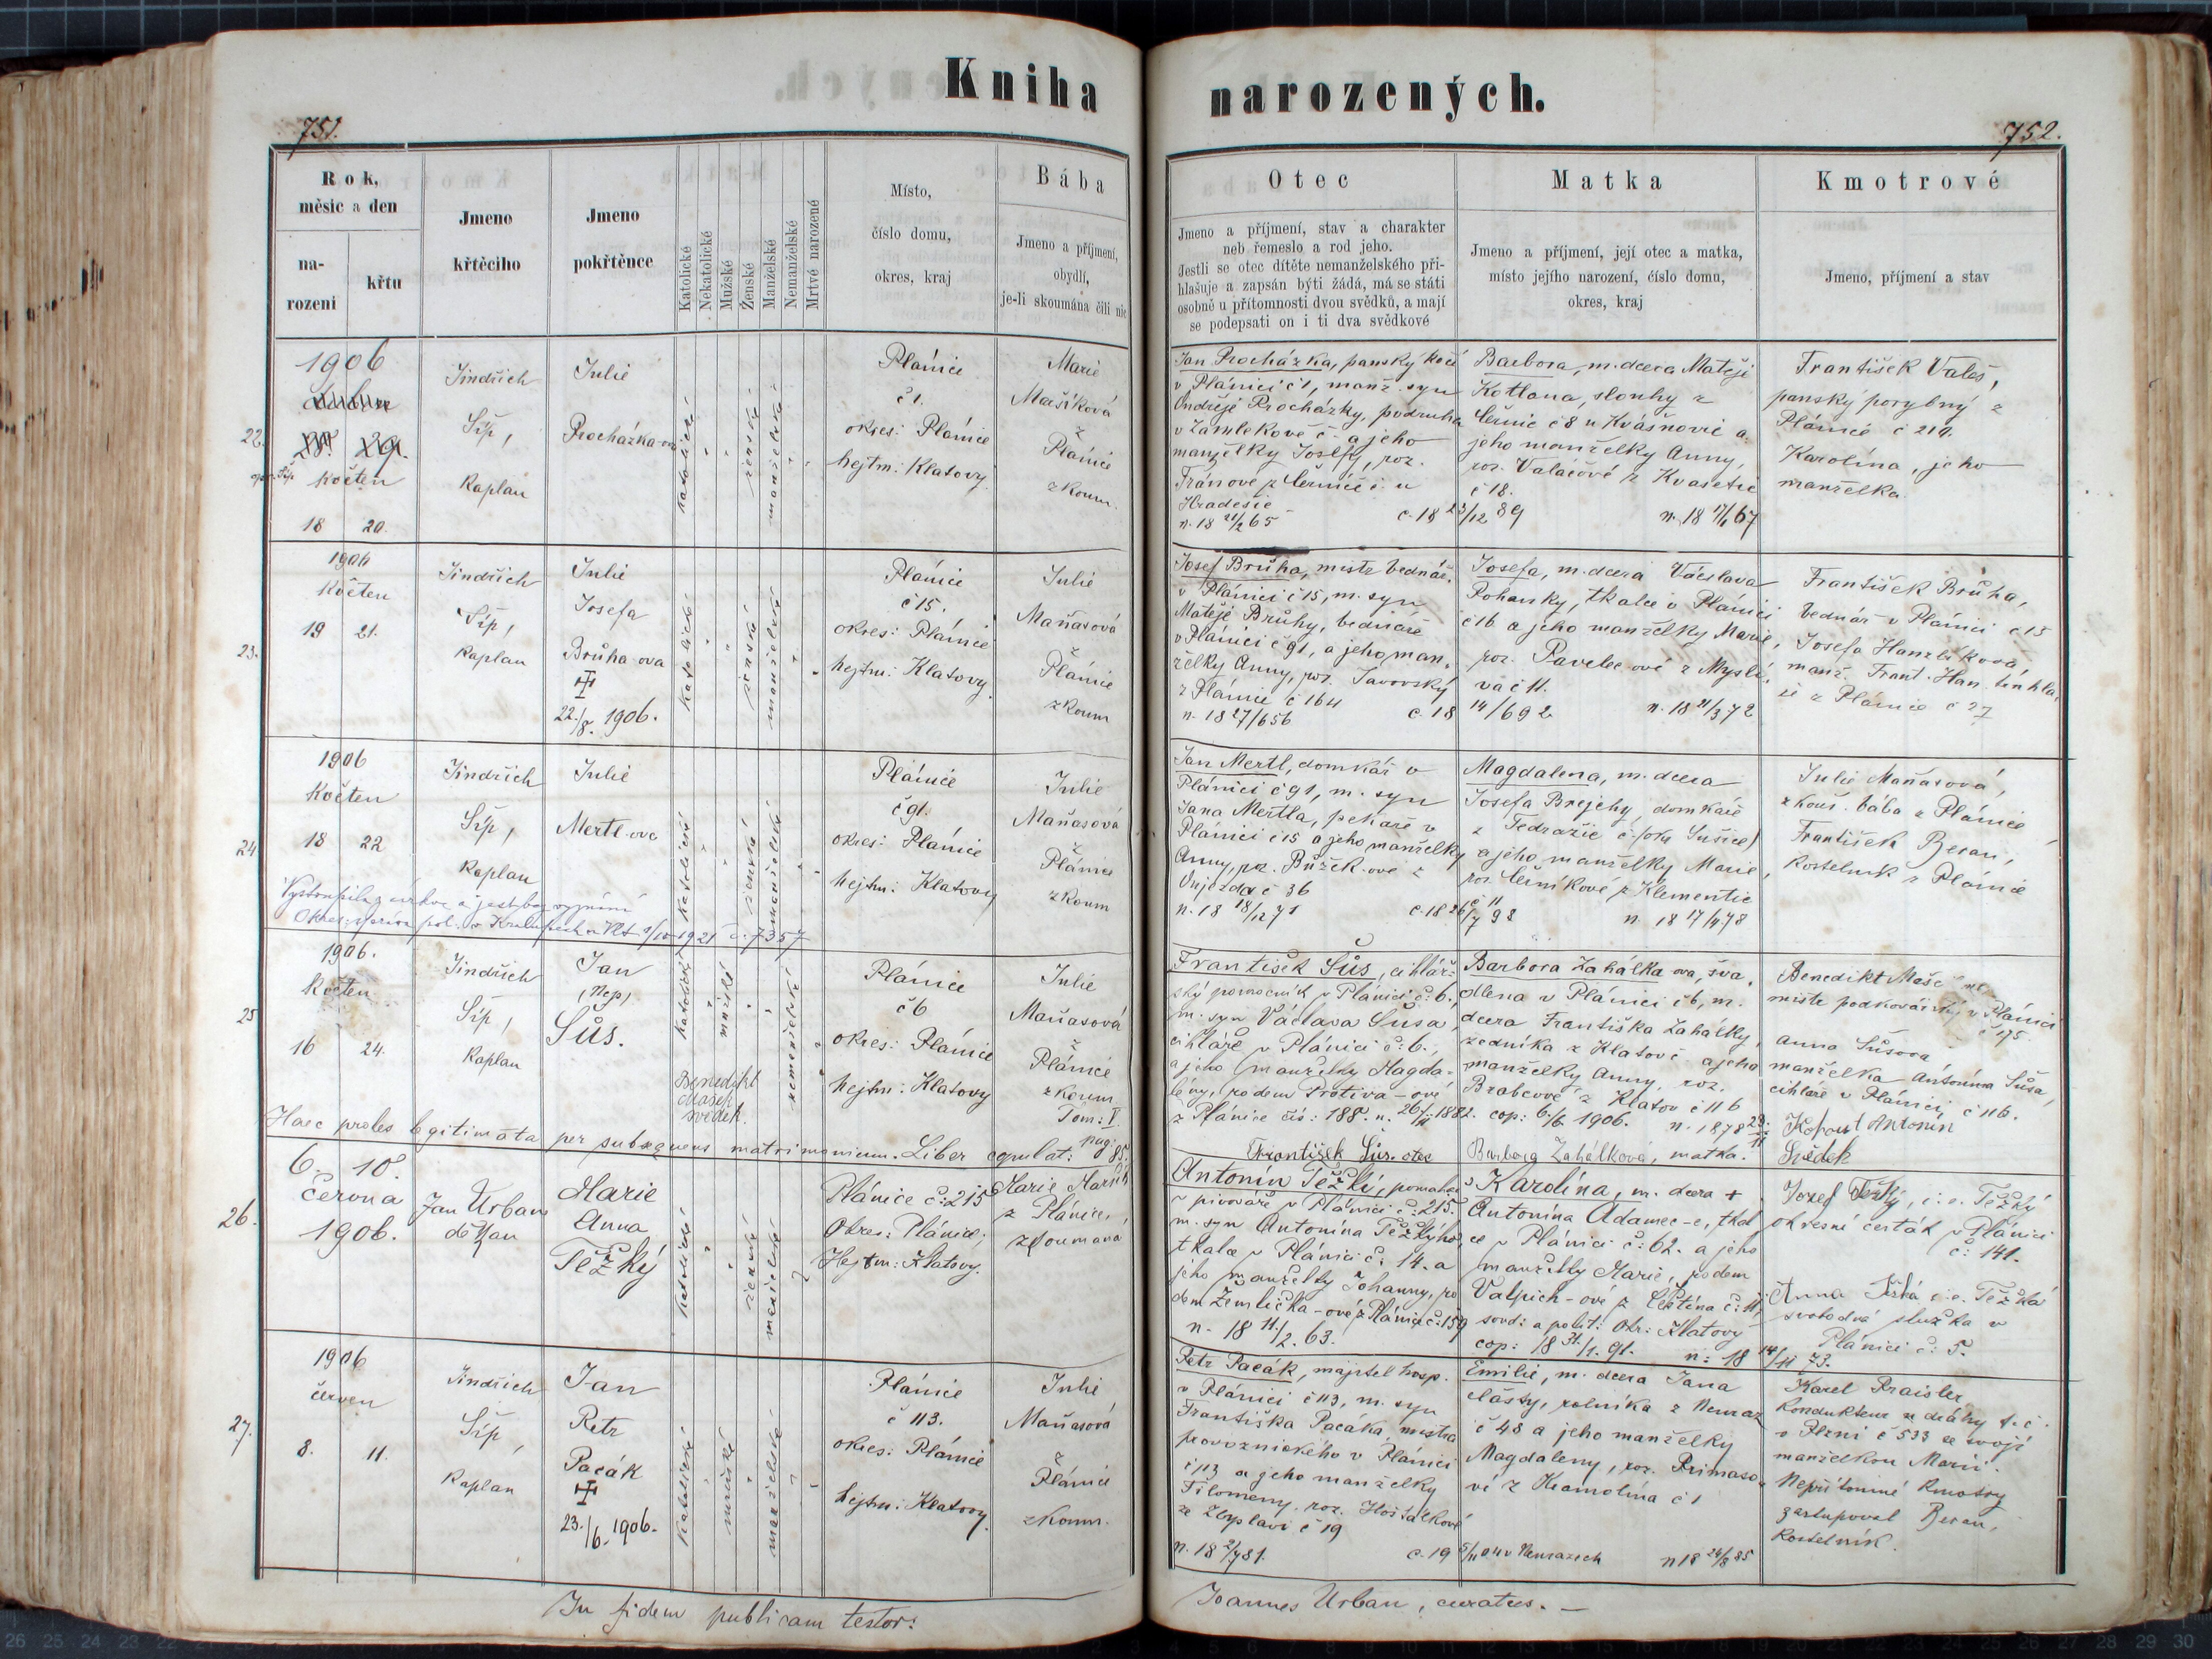 Kniha narozených.
751.
752.
Rok,
měsíc a den
na-
rozeni
křtu
Jmeno
křtěcího
Jmeno
pokřtěnce
Katolické
Nekatolické
Mužské
Ženské
Manželské
Nemanželské
Mrtvé narozené
Místo,
číslo domu,
okres, kraj
Bába
Jmeno a příjmení,
obydlí,
je-li skoumána čili nic
Otec
Jmeno a příjmení, stav a charakter
neb řemeslo a rod jeho.
Jestli se otec dítěte nemanželského při-
hlašuje a zapsán býti žádá, má se státi
osobně u přítomnosti dvou svědků, a mají
se podepsati on i ti dva svědkové
Matka
Jmeno a příjmení, její otec a matka,
místo jejího narození, číslo domu,
okres, kraj
Kmotrové
Jmeno, příjmení a stav
22.
1906
květen
18 20.
Jindřich
Šíp,
Kaplan
Julie
Procházka-ova
katolické
ženské
manželské
Plánice
č 1.
okres: Plánice
hejtm: Klatovy
Marie
Mašková
z
Plánice
zkoum.
Jan Procházka, panský kočí
v Plánici č 1, manž. syn
Ondřeje Procházky, podruha
v Zamlekově č - a jeho
manželky Josefy, roz.
Hradešic
n. 18 21/2 65
c. 18 23/12 89
Barbora, m. dcera Matěje
Kotlana, slouhy z
č 8 u Kvášňovic a
jeho manželky Anny,
roz. Valačové z Kvasetic
č 18.
n. 18 17/1 67
František Valeš,
panský porybný z
Plánice č 219.
Karolina, jeho
manželka.
23.
1906
Květen
19 21.
Jindřich
Šíp,
Kaplan
Julie
Josefa
Brůha-ova
22./8. 1906.
Katolické
ženské
manželské
Plánice
č 15.
okres: Plánice
hejtm: Klatovy
Julie
Maňasová
Plánice
zkoum
Josef Brůha, mistr bednář.
v Plánici č 15, m. syn
Matěje Brůhy, bednáře
v Plánici č 91, a jeho man-
želky Anny, roz. Javorský
z Plánice č 164
n. 18 27/6 56
c. 18 14/6 92
Josefa, m. dcera Václava
Pohanky, tkalce v Plánici
č 16 a jeho manželky Marie,
roz. Pavelec-ové z Myslí-
va č 11.
n. 18 21/3 72
František Brůha,
bednář v Plánici č 15
Josefa Hanzlíková,
manž. Frant.
z Plánice č 27
24
1906
Květen
18 22
Jindřich
Šíp,
Kaplan
Julie
Mertl-ova
Katolické
ženské
manželské
Plánice
č 91.
okres: Plánice
hejtm: Klatovy
Julie
Maňasová
z
Plánice
zkoum
Vystoupila z církve a jest bez vyznání
Okres. správa pol. v Kralupech n Vlt. 1921 č: 7357
Jan Mertl, domkář v
Plánici č 91, m. syn
Jana Mertla, pekaře v
Plánici č 15 a jeho manželky
Anny, roz. Bůžek-ové z
Újezda č 36
n. 18 18/12 71
c. 18 26/7 98
Magdalena, m. dcera
Josefa Brejchy, domkáře
z Tedražic č - (okr Sušice)
a jeho manželky Marie,
roz. z Klementic
č 11
n. 18 17/4 78
Julie Maňasová,
zkouš. bába z Plánice
František Beran,
Kostelník z Plánice
25
1906.
Květen
16 24.
Jindřich
Šíp,
Kaplan
Jan
(Nep)
Šůs.
Katolické
mužské
nemanželské
Benedikt
Mašek
svědek.
Plánice
č 6
okres: Plánice
hejtm: Klatovy
Julie
Maňasová
z
Plánice
zkoum
Tom: I
pag: 85.
Haec proles legitimata per subsequens matrimonium. Liber copulat:
František Šůs, cihlář-
ský pomocník v Plánici č: 6.,
m. syn Václava Šůsa,
cihláře v Plánici č: 6.,
a jeho manželky Magda-
lény, rodem Protiva-ové
z Plánice čís: 188. n. 1882.
František Šůs. otec
Barbora Zahálka-ova, svo-
dlena v Plánici č 6, m.
dcera Františka Zahálky,
zedníka z Klatov č - a jeho
manželky Anny, roz.
Brabcové z Klatov č 116
cop: 6./6 1906. n. 1878
Barbora Zahálková, matka.
Benedikt Mašek
mistr podkovářský v Plánici
č 175.
Anna Šůsova
manželka Antonína Šůsa,
cihláře v Plánici, č 116.
Antonín
Svědek
26.
6. 10.
června
1906.
Jan Urban
děkan
Marie
Anna
Těžký
katolické
ženské
manželské
Plánice č: 215
Okres: Plánice;
Hejtm: Klatovy.
Marie
z Plánice,
zkoumaná
Antonín Těžký, pomahač
v pivováře v Plánici č: 215.
m. syn Antonína Těžkýho,
tkalce v Plánici č: 14. a
jeho manželky Johanny, ro
dem Žemlička-ové z Plánice č: 159
n. 18 11./2. 63.
Karolína, m. dcera +
Antonína Adamec-e, tkal
ce v Plánici č: 62. a jeho
manželky Marie, rodem
Valpich-ové z č: 11,
soud: a polit: Okr: Klatovy
cop: 18 31./1. 91. n: 18 14/11 73.
Josef Těžký, i. e. Těžký
okresní cesťák v Plánici
č: 141.
Anna Těžká i. e. Těžká
svobodná služka v
Plánici č: 5.
27.
1906
červen
8. 11.
Jindřich
Šíp,
Kaplan
Jan
Petr
Pacák
23./6. 1906.
Katolické
mužské
manželské
Plánice
č 113.
okres: Plánice
hejtm: Klatovy.
Julie
Maňasová
z
Plánice
zkoum.
Petr Pacák, majitel hosp.
v Plánici č 113, m. syn
Františka Pacáka, mistra
provaznického v Plánici
č 113 a jeho manželky
Filomeny, roz. Hošťálkové
ze Zborovi č 19
n. 18 2/7 81.
c. 19 5/11 04 v Neurazech
Emilie, m. dcera Jana
Částy, rolníka z Neuraz
č 48 a jeho manželky
Magdaleny, roz. Primaso-
vé z Kramolína č 1
n 18 24/8 85
Karel Praisler
kondukteur u dráhy t. č.
v Plzni č 533 se svojí
manželkou Marií.
Nepřítomné kmotry
zastupoval Beran,
kostelník.
In fidem publicam testor:
Joannes Urban, curatus. —